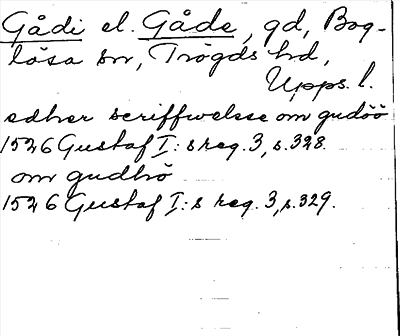 Gådi el. Gåde, gd, Bog-
lösa sn, Trögds hd,
Upps. l.
edher scriffwelsse om gudöö
1526 Gustaf I:s reg. 3, s. 328.
om gudhö
1526 Gustaf I:s reg. 3, s. 329.